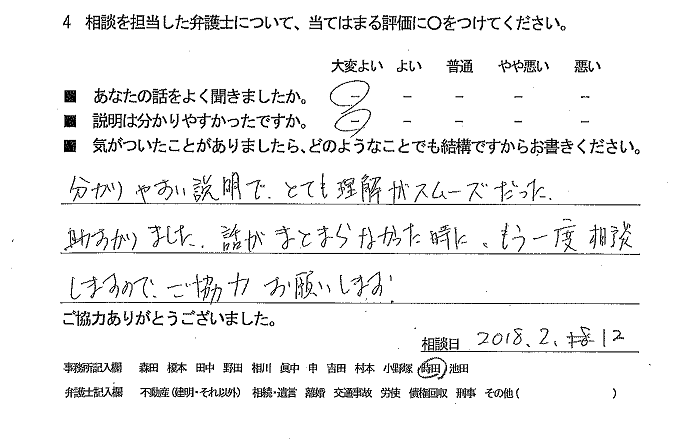 4 相談を担当した弁護士について、当てはまる評価に○をつけてください。
大変よい よい 普通 やや悪い 悪い
■ あなたの話をよく聞きましたか。 － － － － －
■ 説明は分かりやすかったですか。 － － － － －
■ 気がついたことがありましたら、どのようなことでも結構ですからお書きください。
分かりやすい説明で、とても理解がスムーズだった。
助すかりました。話がまとまらなかった時に、もう一度相談
しますので、ご協力お願いします。
ご協力ありがとうございました。
相談日 2018.2.12
事務所記入欄 森田 榎本 田中 野田 相川 眞中 申 吉田 村本 小野塚 時田 池田
弁護士記入欄 不動産(建明・それ以外) 相続・遺言 離婚 交通事故 労使 債権回収 刑事 その他( )